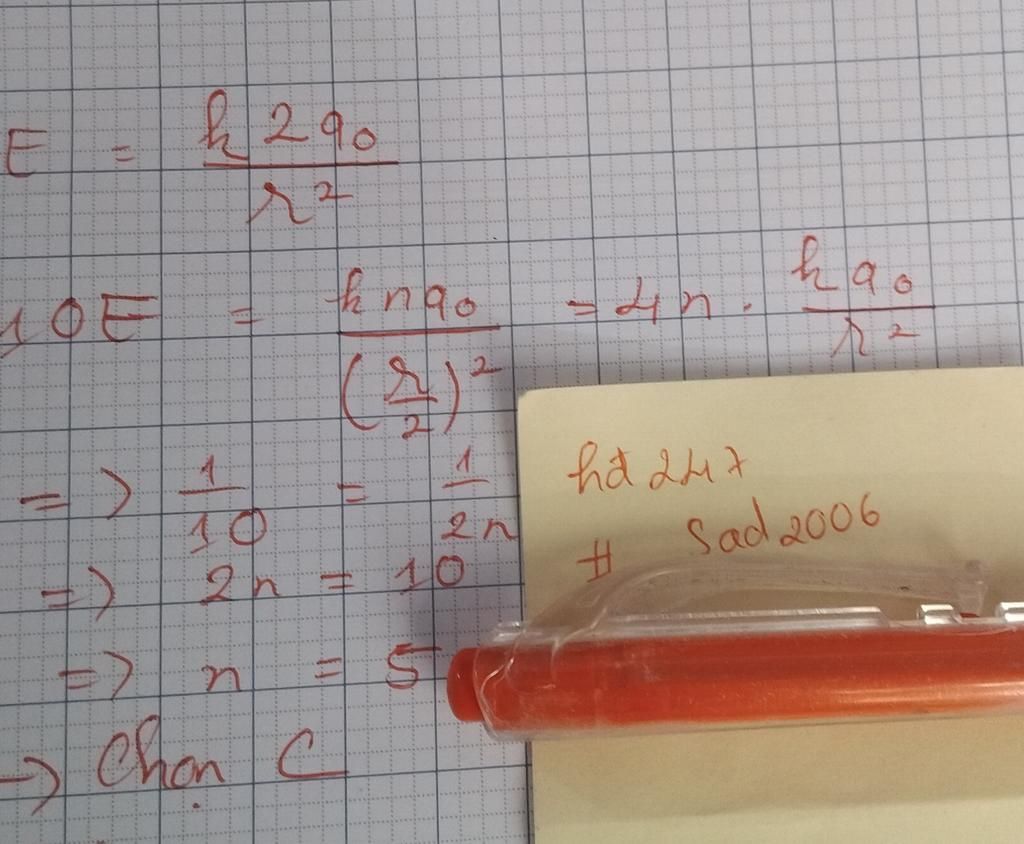 E = k 2q₀ / r²
10E = k n q₀ / (r/2)² = 4n . k q₀ / r²
=> 1/10 = 1/2n
=> 2n = 10
=> n = 5
-> Chọn C
hd 247
# Sad2006